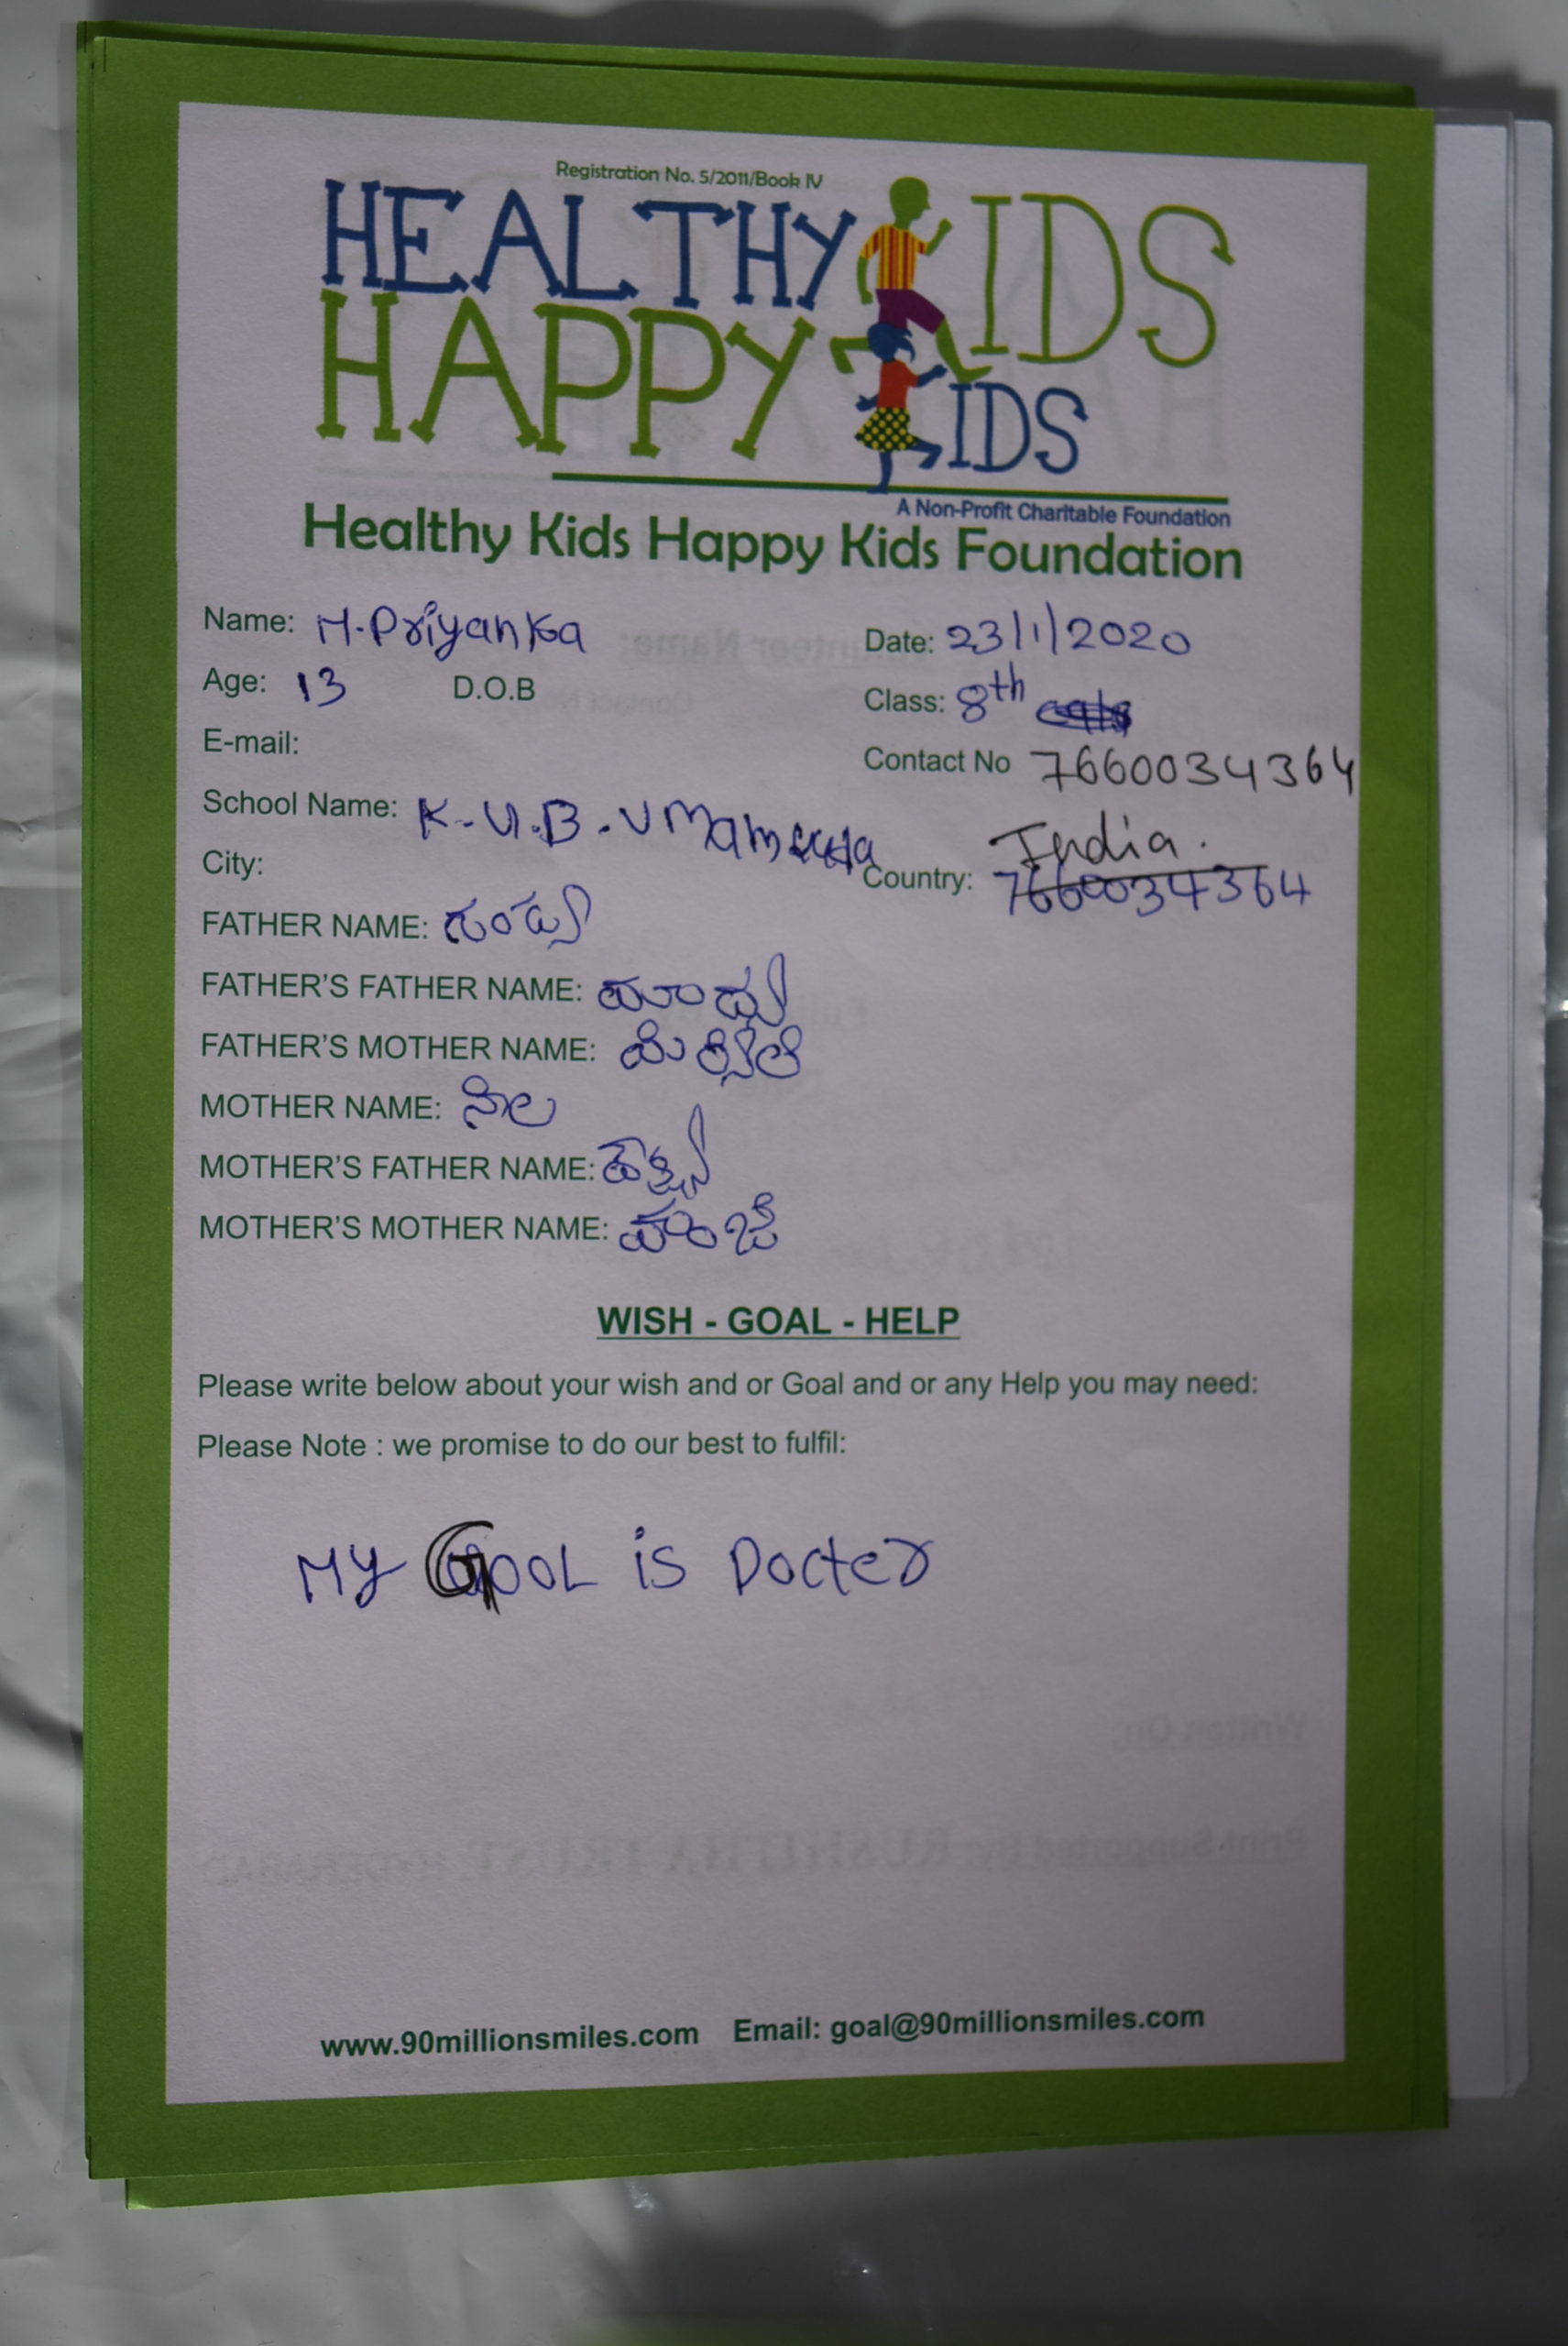 Registration No. 5/2011/Book IV
HEALTHY KIDS
HAPPY KIDS
A Non-Profit Charitable Foundation
Healthy Kids Happy Kids Foundation
Name: M.Priyanka Date: 23/1/2020
Age: 13 D.O.B Class: 8th
E-mail: Contact No 7660034364
School Name: K.U.B.V
City: Country: India. 7660034364
FATHER NAME:
FATHER'S FATHER NAME:
FATHER'S MOTHER NAME:
MOTHER NAME:
MOTHER'S FATHER NAME:
MOTHER'S MOTHER NAME:
WISH - GOAL - HELP
Please write below about your wish and or Goal and or any Help you may need:
Please Note : we promise to do our best to fulfil:
MY GOOL is Docter
www.90millionsmiles.com Email: goal@90millionsmiles.com